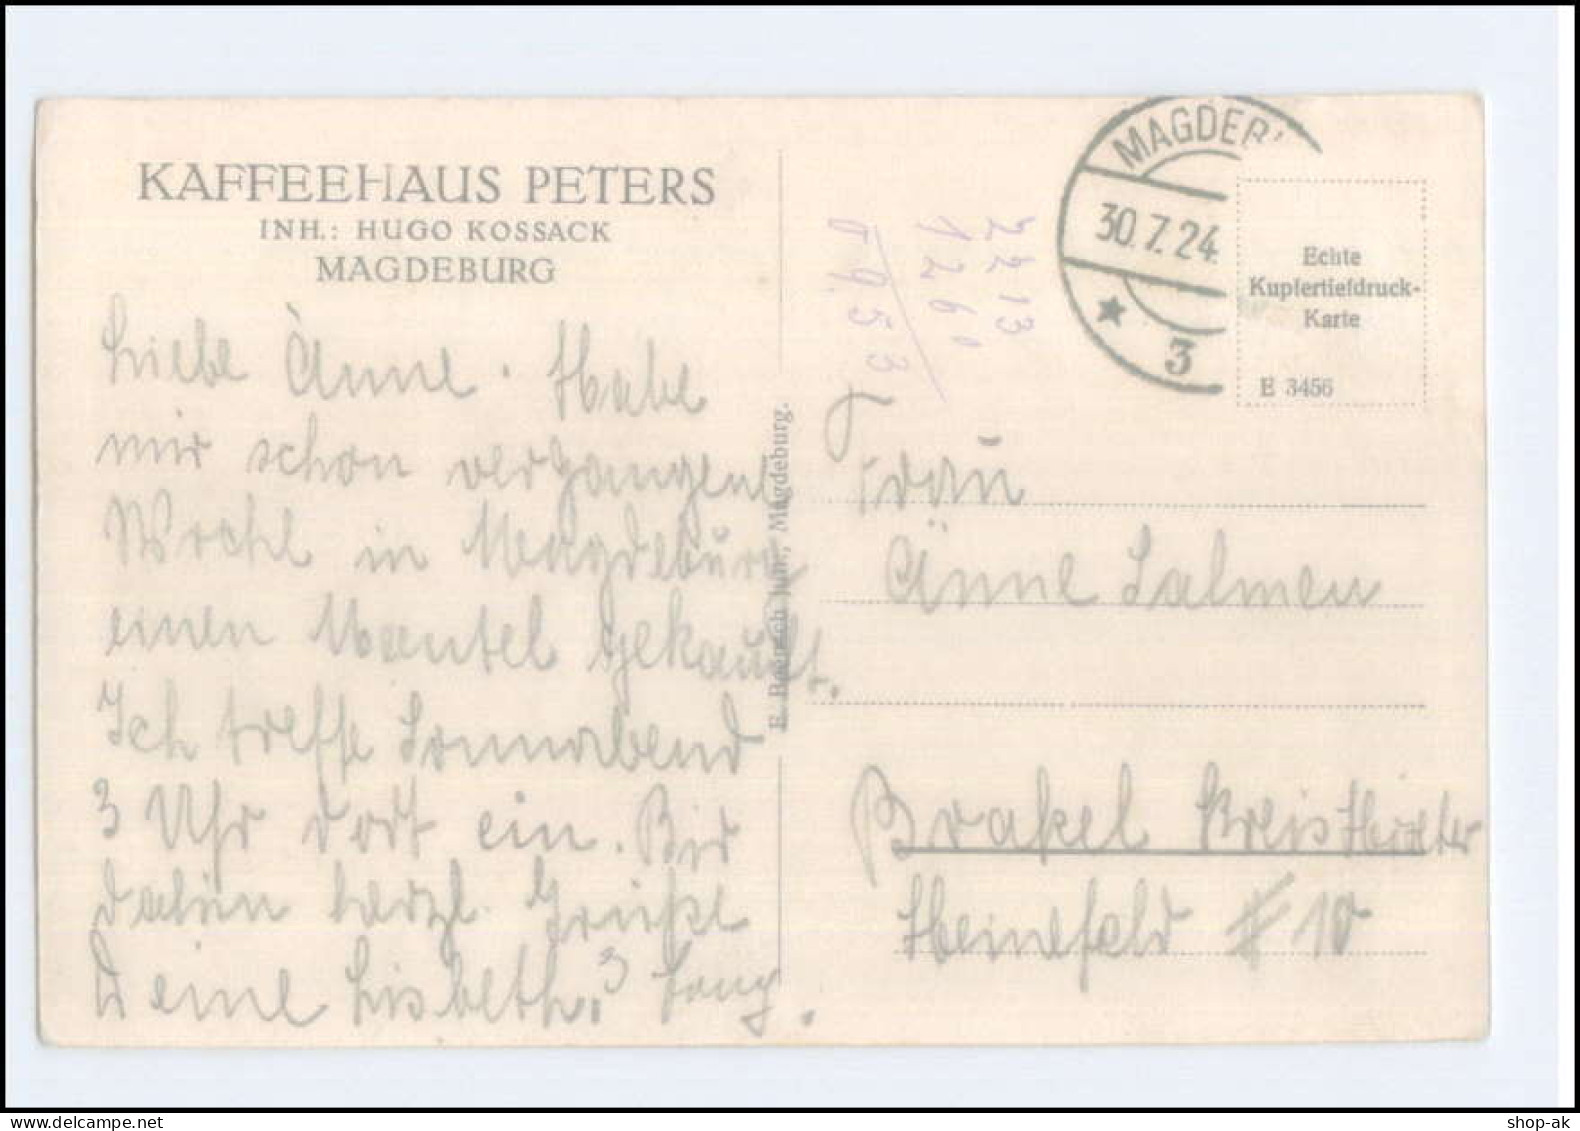 KAFFEEHAUS PETERS
INH.: HUGO KOSSACK
MAGDEBURG
Liebe Änne. Habe
mir schon vergangene
Woche in Magdeburg
einen Mantel gekauft.
Ich treffe Sonnabend
3 Uhr dort ein. Bis
dahin herzl. Grüße
Deine Lisbeth.
Magdeburg.
2213
1260
953
MAGDEB
30.7.24
3
Echte
Kupfertiefdruck-
Karte
E 3456
Frau
Änne Salmen
Brakel Kreis Höxter
Heinefeld # 10
shop-ak